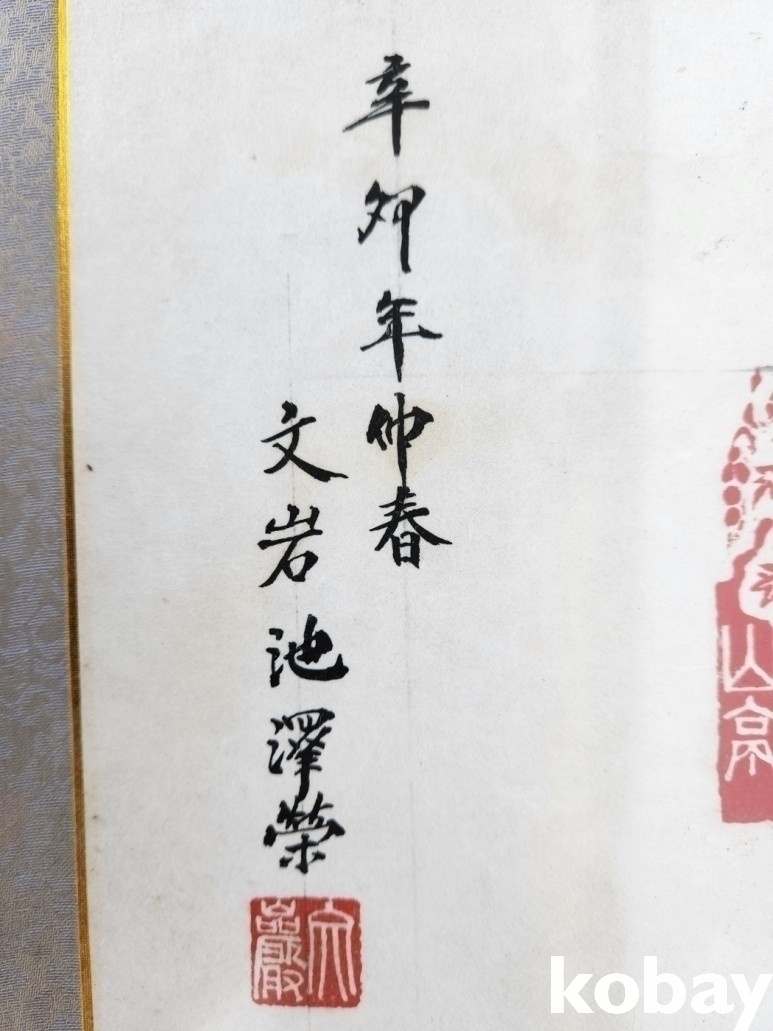 辛卯年仲春
文岩池澤榮
文巖
山亭
kobay